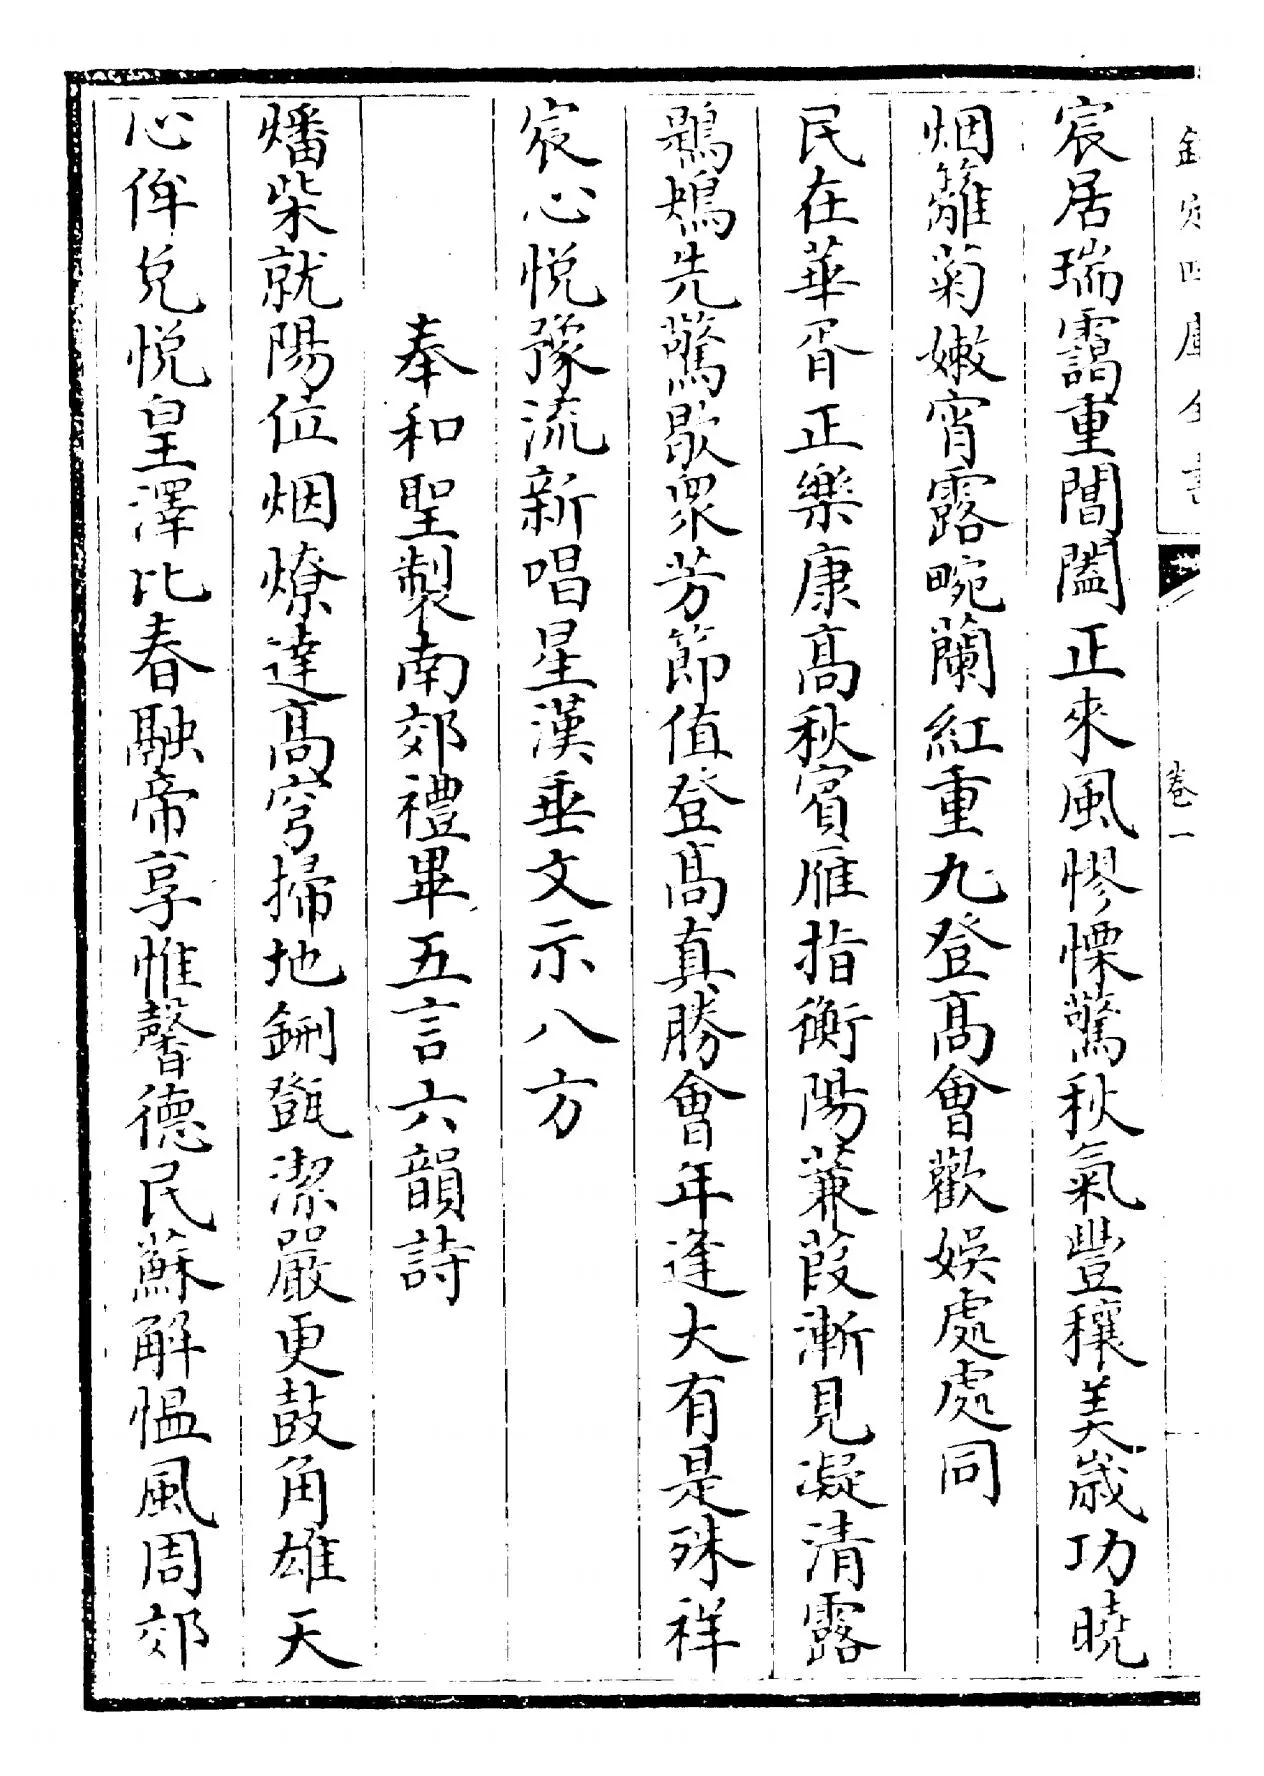 欽定四庫全書
卷一
宸居瑞靄重閶闔正來風憀慄驚秋氣豐穰美歲功曉
烟籬菊嫩宵露畹蘭紅重九登髙會歡娛處處同
民在華胥正樂康髙秋賓雁指衡陽蒹葭漸見凝清露
鶗鴂先驚歇衆芳節值登髙真勝會年逢大有是殊祥
宸心悦豫流新唱星漢垂文示八方
奉和聖製南郊禮畢五言六韻詩
燔柴就陽位烟燎達髙穹掃地鉶㽅潔嚴更鼓角雄天
心侔兌悦皇澤比春融帝享惟馨德民蘇解愠風周郊